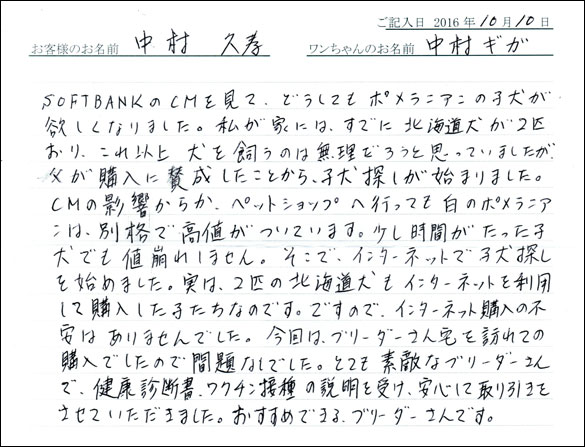 ご記入日 2016年10月10日
お客様のお名前 中村 久孝 ワンちゃんのお名前 中村ギガ
SOFTBANKのCMを見て、どうしてもポメラニアンの子犬が
欲しくなりました。私が家には、すでに北海道犬が2匹
おり、これ以上犬を飼うのは無理だろうと思っていましたが、
父が購入に賛成したことから、子犬探しが始まりました。
CMの影響からか、ペットショップへ行っても白のポメラニア
ンは、別格で高値がついています。少し時間がたった子
犬でも値崩れしません。そこで、インターネットで子犬探し
を始めました。実は、2匹の北海道犬もインターネットを利用
して購入した子たちなのです。ですので、インターネット購入の不
安はありませんでした。今回は、ブリーダーさん宅を訪れての
購入でしたので問題なしでした。とても素敵なブリーダーさん
で、健康診断書、ワクチン接種の説明を受け、安心して取り引きを
させていただきました。おすすめできる、ブリーダーさんです。